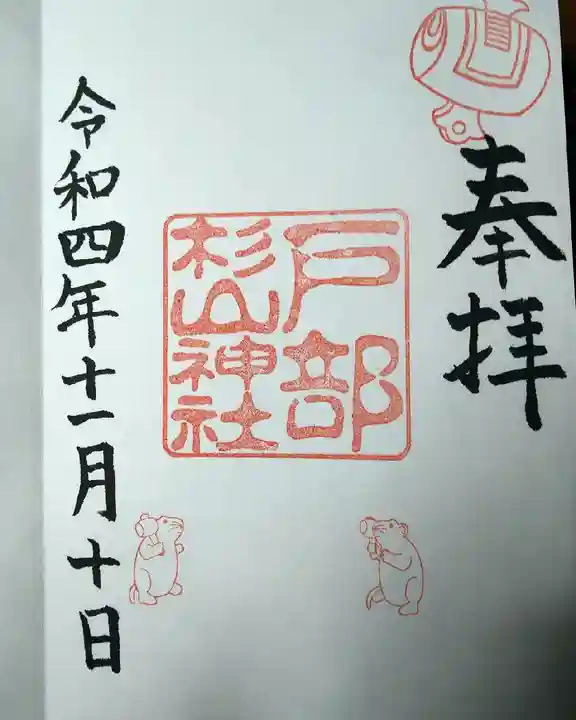 奉拝
戸部
杉山神社
令和四年十一月十日